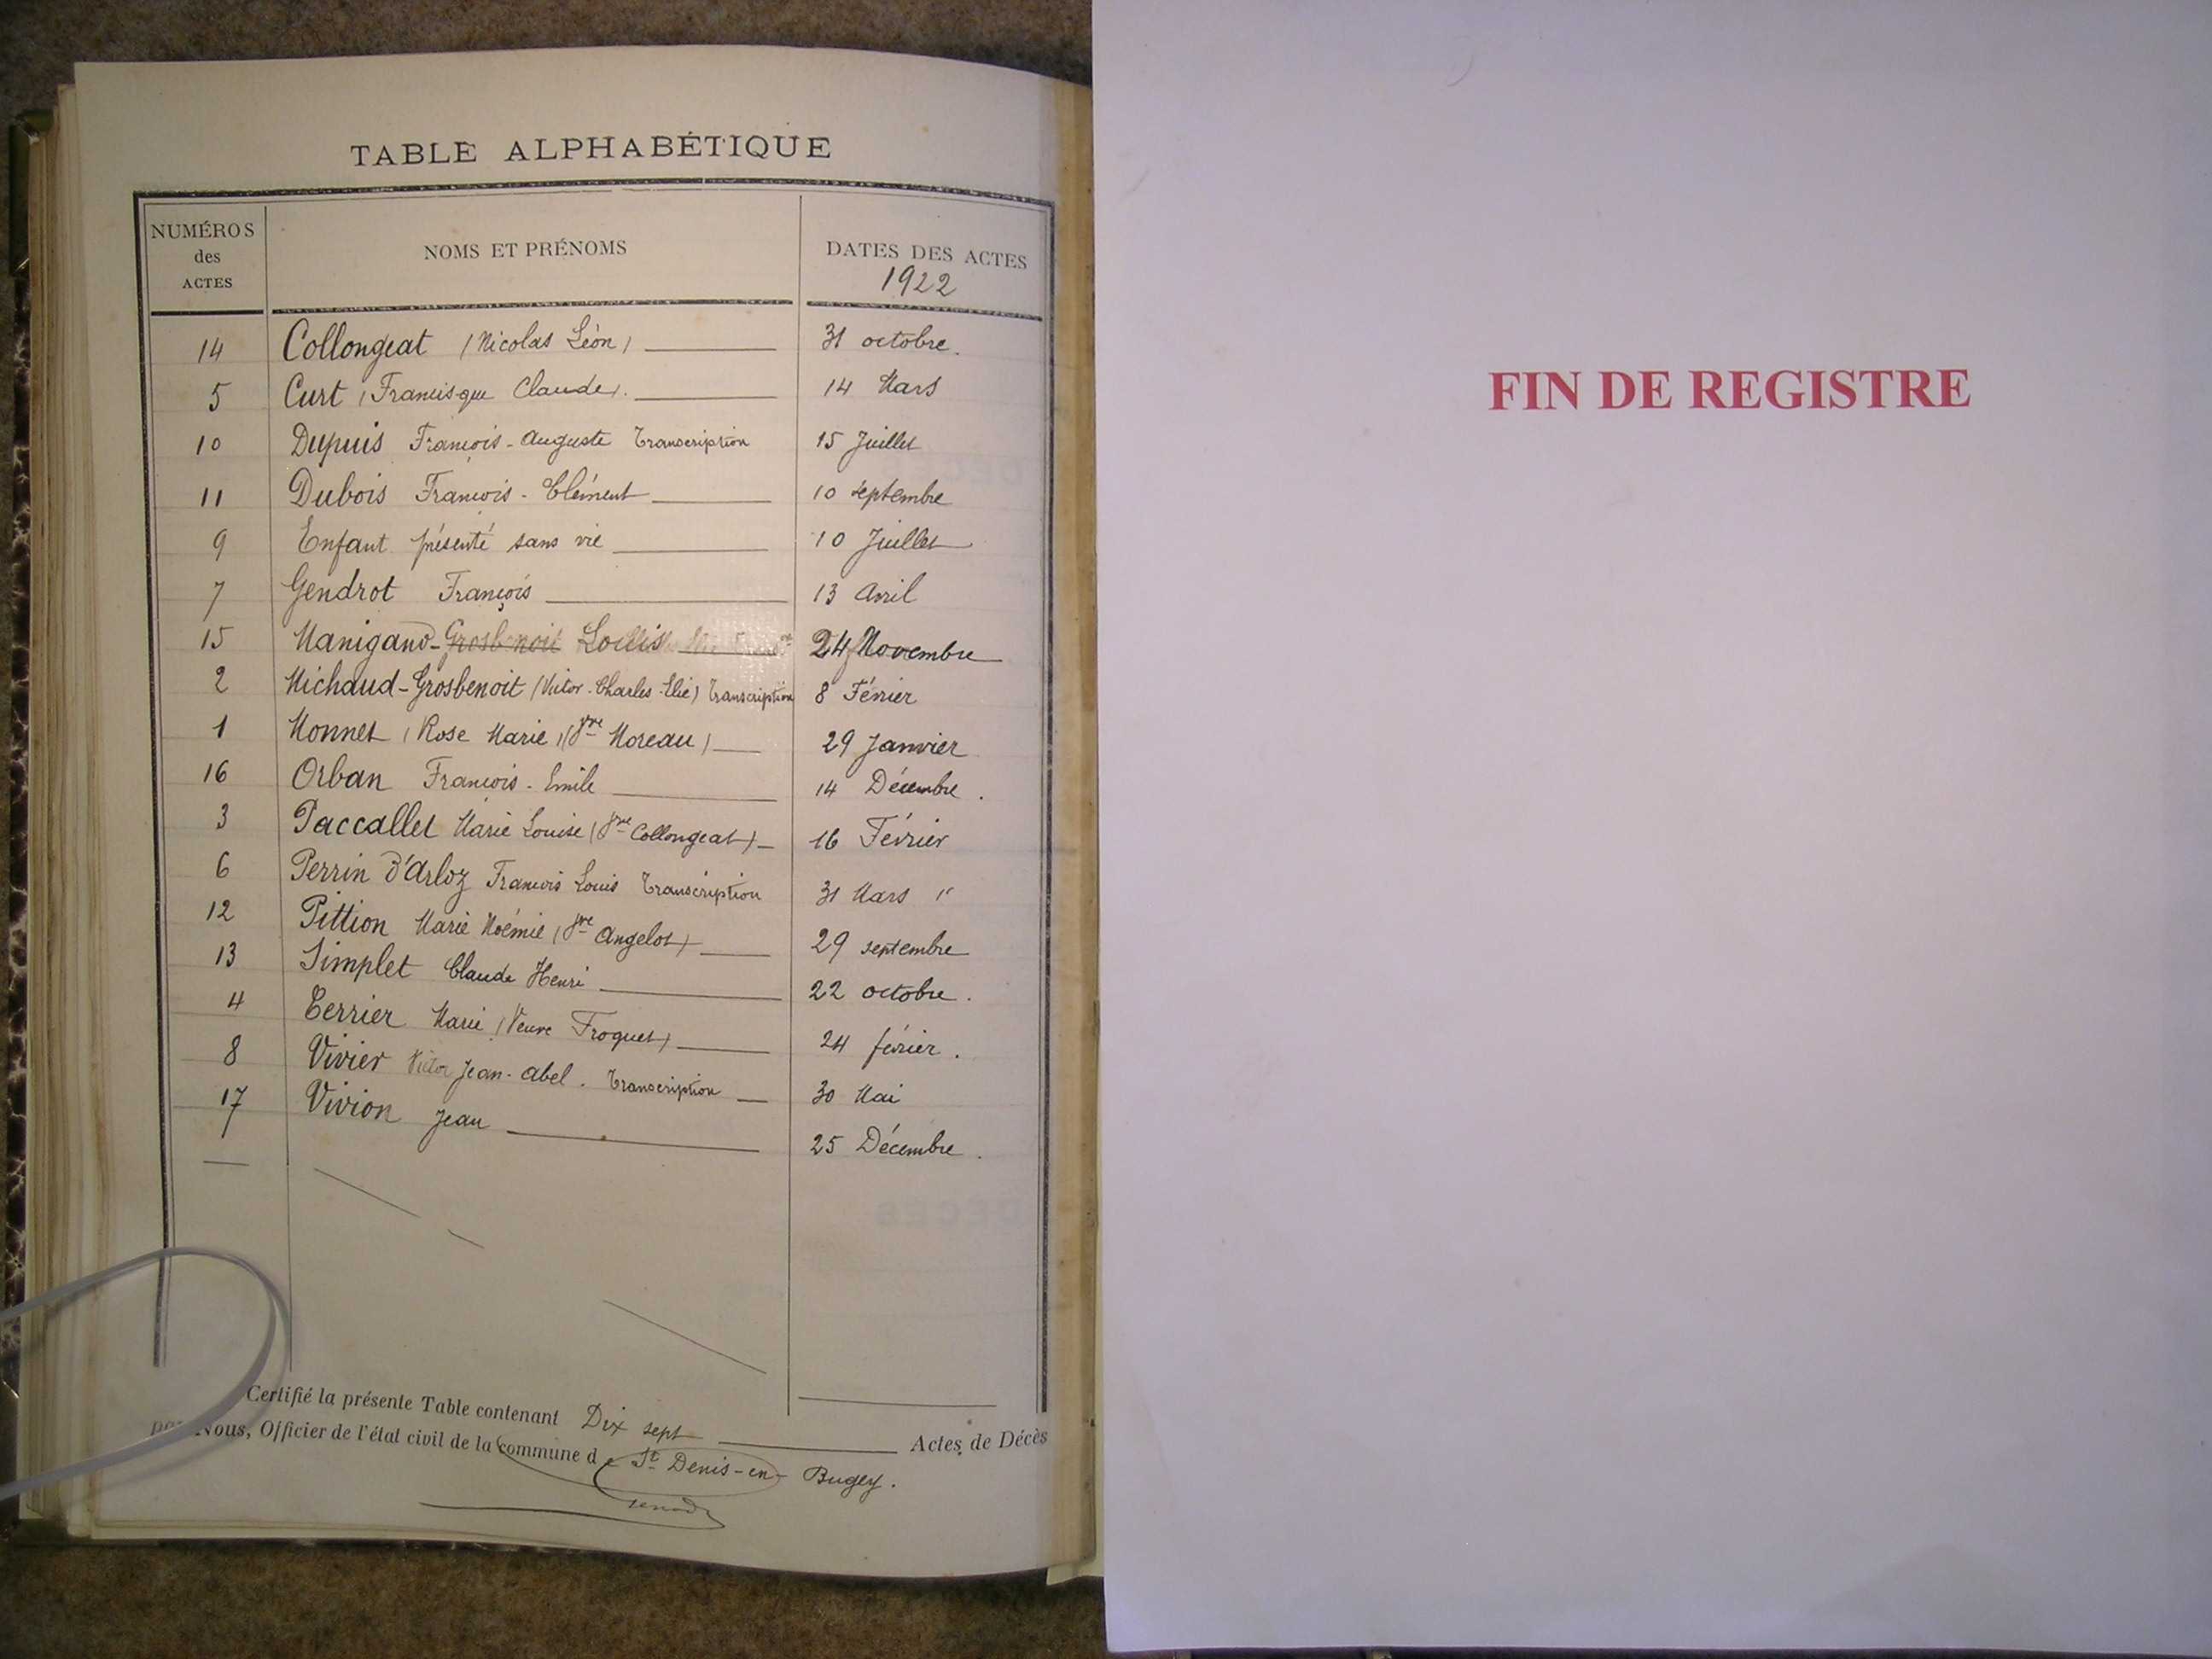 TABLE ALPHABÉTIQUE
NUMÉROS des ACTES NOMS ET PRÉNOMS DATES DES ACTES
1922
14 Collongeat (Nicolas Léon) 31 octobre.
5 Curt (Francisque Claude). 14 Mars
10 Dupuis François-Auguste Transcription 15 Juillet
11 Dubois François-Clément 10 septembre
9 Enfant présenté sans vie 10 Juillet
7 Gendrot François 13 Avril
15 Manigand-Grosbenoit Louis 24 Novembre
2 Michaud-Grosbenoit (Victor-Charles-Elie) Transcription 8 Février
1 Monnet (Rose Marie) (Vve Moreau) 29 Janvier
16 Orban François-Emile 14 Décembre.
3 Paccallet Marie Louise (Vve Collongeat) 16 Février
6 Perrin d'Arloz François Louis Transcription 31 Mars "
12 Pittion Marie Noémie (Vve Angelot) 29 septembre
13 Simplet Claude Henri 22 octobre.
4 Terrier Marie (Veuve Froquet) 24 février.
8 Vivier Victor Jean-Abel. Transcription 30 Mai
17 Vivion Jean 25 Décembre.
Certifié la présente Table contenant Dix sept Actes de Décès
par Nous, Officier de l'état civil de la commune de St Denis-en-Bugey.
FIN DE REGISTRE